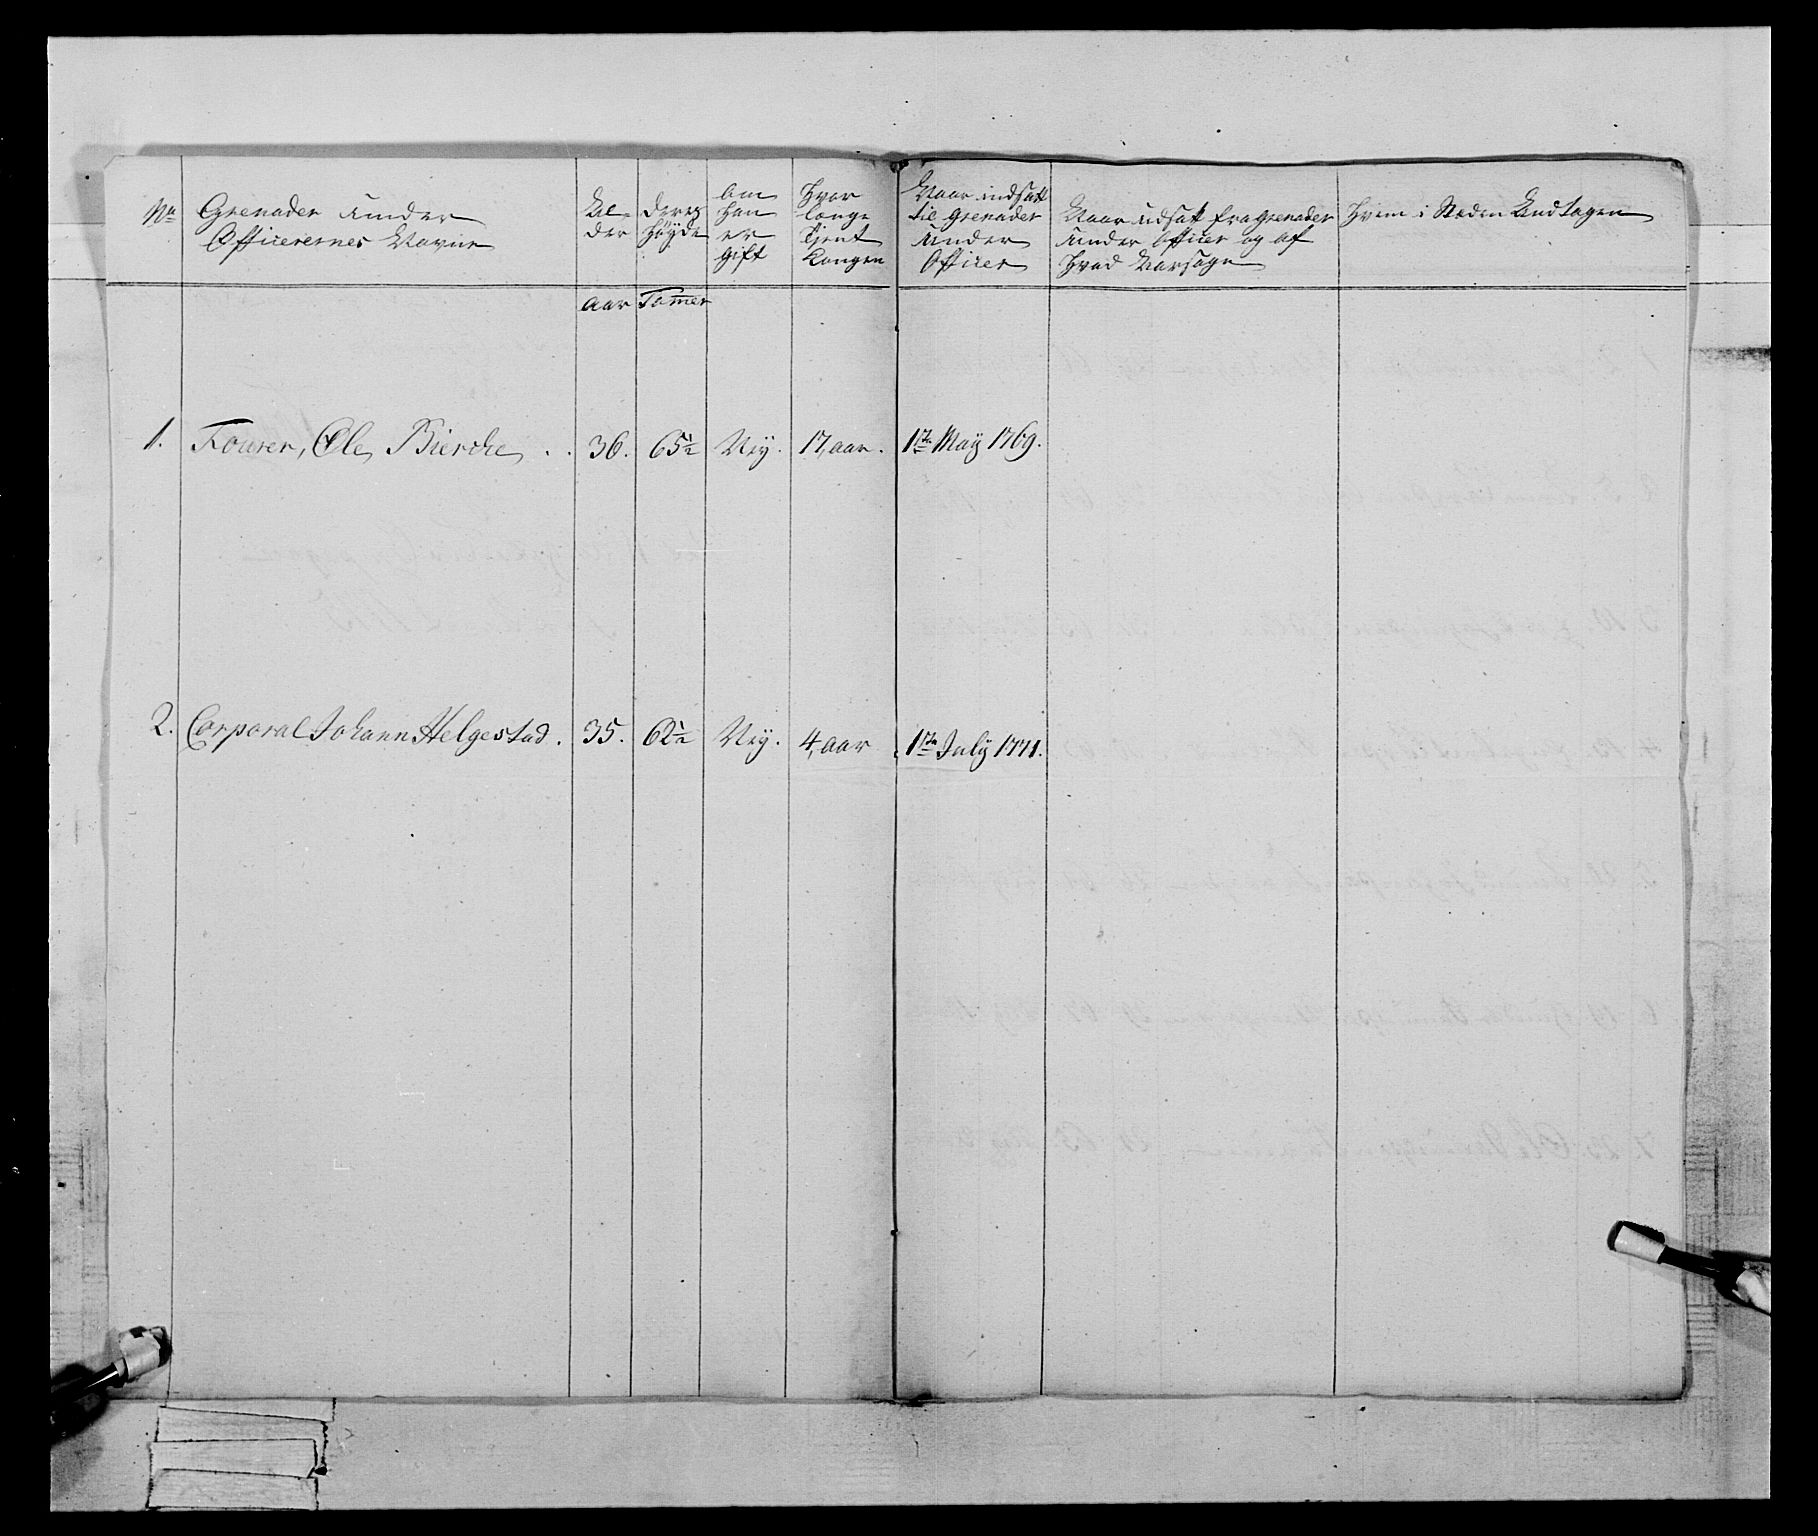 No
Grenader under
Officerernes Navne
Al-
der
Deres
Høyde
Om
Han
er
gift
Hvor
længe
Tjent
Kongen
Naar indsatt
til grenader
under
Officer
Naar udsatt fra grenader
under officer og af
Hvad Aarsage
Hvem i Steden Andtagen
Aar Tomer
1. Fourer, Ole Bierche . . 36. 65½ Ney. 17, aar. 1te May 1769.
2. Corporal Johann Helgestad. 35. 62½ Ney. 4, aar 1te July 1771.